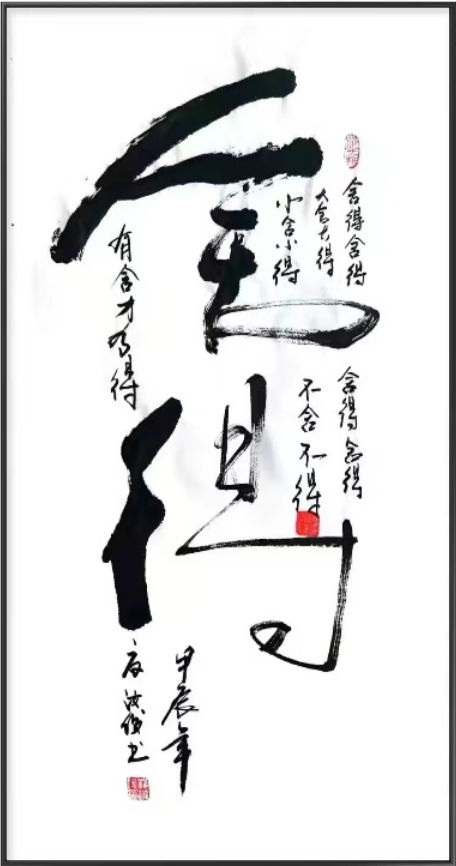 舍得
舍得舍得
大舍大得
小舍小得
舍得舍得
不舍不得
有舍才有得
甲辰年